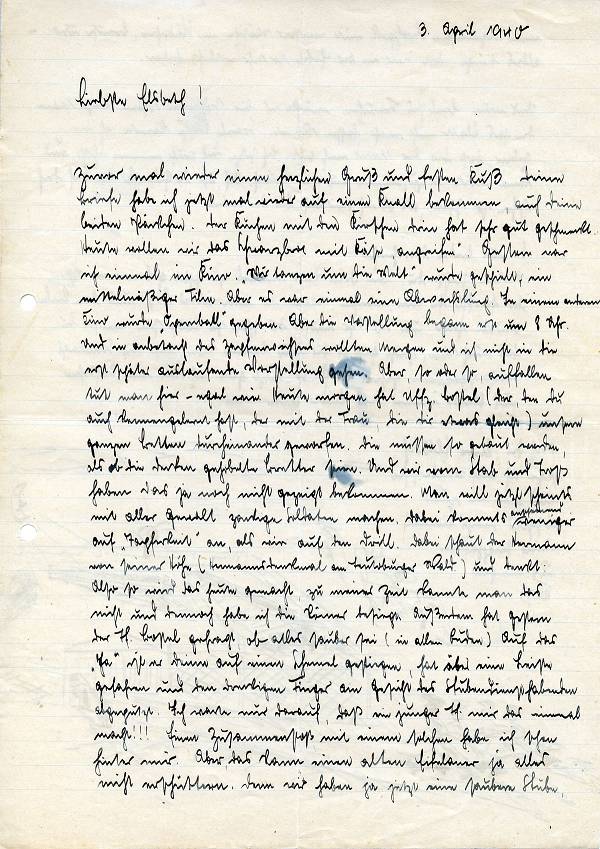 3. April 1940
Liebste Elsbeth!
Zuvor mal wieder einen herzlichen Gruß und festen Kuß. Deine
Briefe habe ich jetzt mal wieder auf einen Knall bekommen, auch Deine
beiden Päckchen. Der Kuchen mit den Kirschen drin hat sehr gut geschmeckt.
Heute wollen wir das Schwarzbrot mit Käse "angreifen". Gestern war
ich einmal im Kino. "Wir tanzen um die Welt" wurde gespielt, ein
mittelmäßiger Film. Aber es war einmal eine Abwechslung. In einem anderen
Kino wurde "Opernball" gegeben. Aber die Vorstellung begann erst um 8 Uhr.
Und in anbetracht des Zapfenstreiches wollten und ich nicht in die
erst später auslaufende Vorstellung gehen. Aber, so oder so, auffallen
tut man hier - egal wie. Heute morgen hat Uffz. Bostel (der den Du
auch kennengelernt hast, der mit der Frau, die Dir etwas gleicht) unsere
ganzen Betten durcheinander geworfen. Die müssen so gebaut werden,
als ob die Decken gehobelte Bretter sein. Und wir vom Stab und Troß
haben das ja noch nicht gezeigt bekommen. Man will jetzt scheints
mit aller Gewalt zackige Soldaten machen. Dabei kommts anscheinend weniger
auf "Tapferkeit" an, als wie auf den Drill. Dabei schaut der Hermann
von seiner Höhe (Hermannsdenkmal am Teutoburger Wald) und denkt:
Also so wird das heute gemacht, zu meiner Zeit kannte man das
nicht und dennoch habe ich die Römer besiegt. Außerdem hat gestern
der U. Bostel gefragt ob alles sauber sei (in allen Buden) Auf das
"Ja" ist er dann auf einen Schemel gestiegen, hat über eine Leiste
gefahren und den dreckigen Finger am Gesicht des Stubendiensthabenden
abgeputzt. Ich warte nur darauf, daß ein junger U. mir das einmal
macht!!! Einen Zusammenstoß mit einem solchen habe ich schon
hinter mir. Aber das kann einen alten ja alles
nicht erschüttern. Denn wir haben ja jetzt eine saubere Stube,